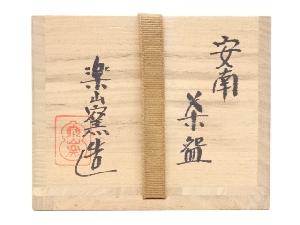 安南
茶碗
楽山窯造